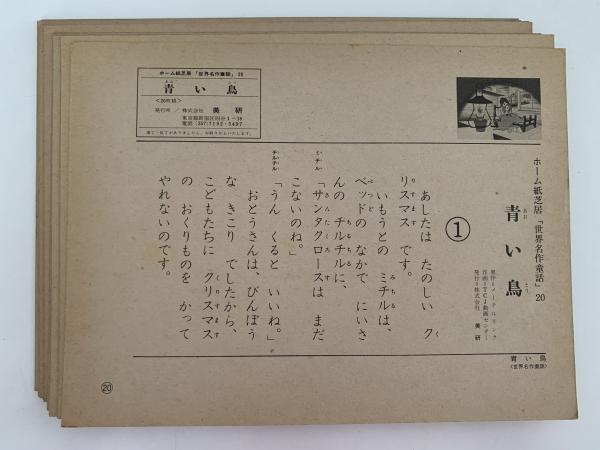 ホーム紙芝居「世界名作童話」20
青い鳥
<20枚組>
発行所／株式会社 美研
東京都新宿区四谷1-18
電話(357)7192・5497
ホーム紙芝居「世界名作童話」20
青い鳥
原作＝メーテルリンク
作画＝TCJ動画センター
発行＝株式会社 美研
①
あしたは たのしい ク
リスマス です。
いもうとの ミチルは、
ベッドの なかで にいさ
んの チルチルに、
ミチル
「サンタクロースは まだ
こないのね。」
チルチル
「うん くると いいね。」
おとうさんは、びんぼう
な きこり でしたから、
こどもたちに クリスマス
の おくりものを かって
やれないのです。
青い鳥
(世界名作童話)
⑳